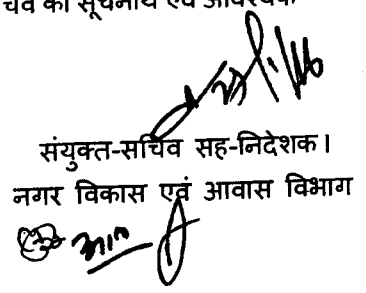 चिव को सूचनार्थ एवं आवश्यक
संयुक्त-सचिव सह-निदेशक।
नगर विकास एवं आवास विभाग